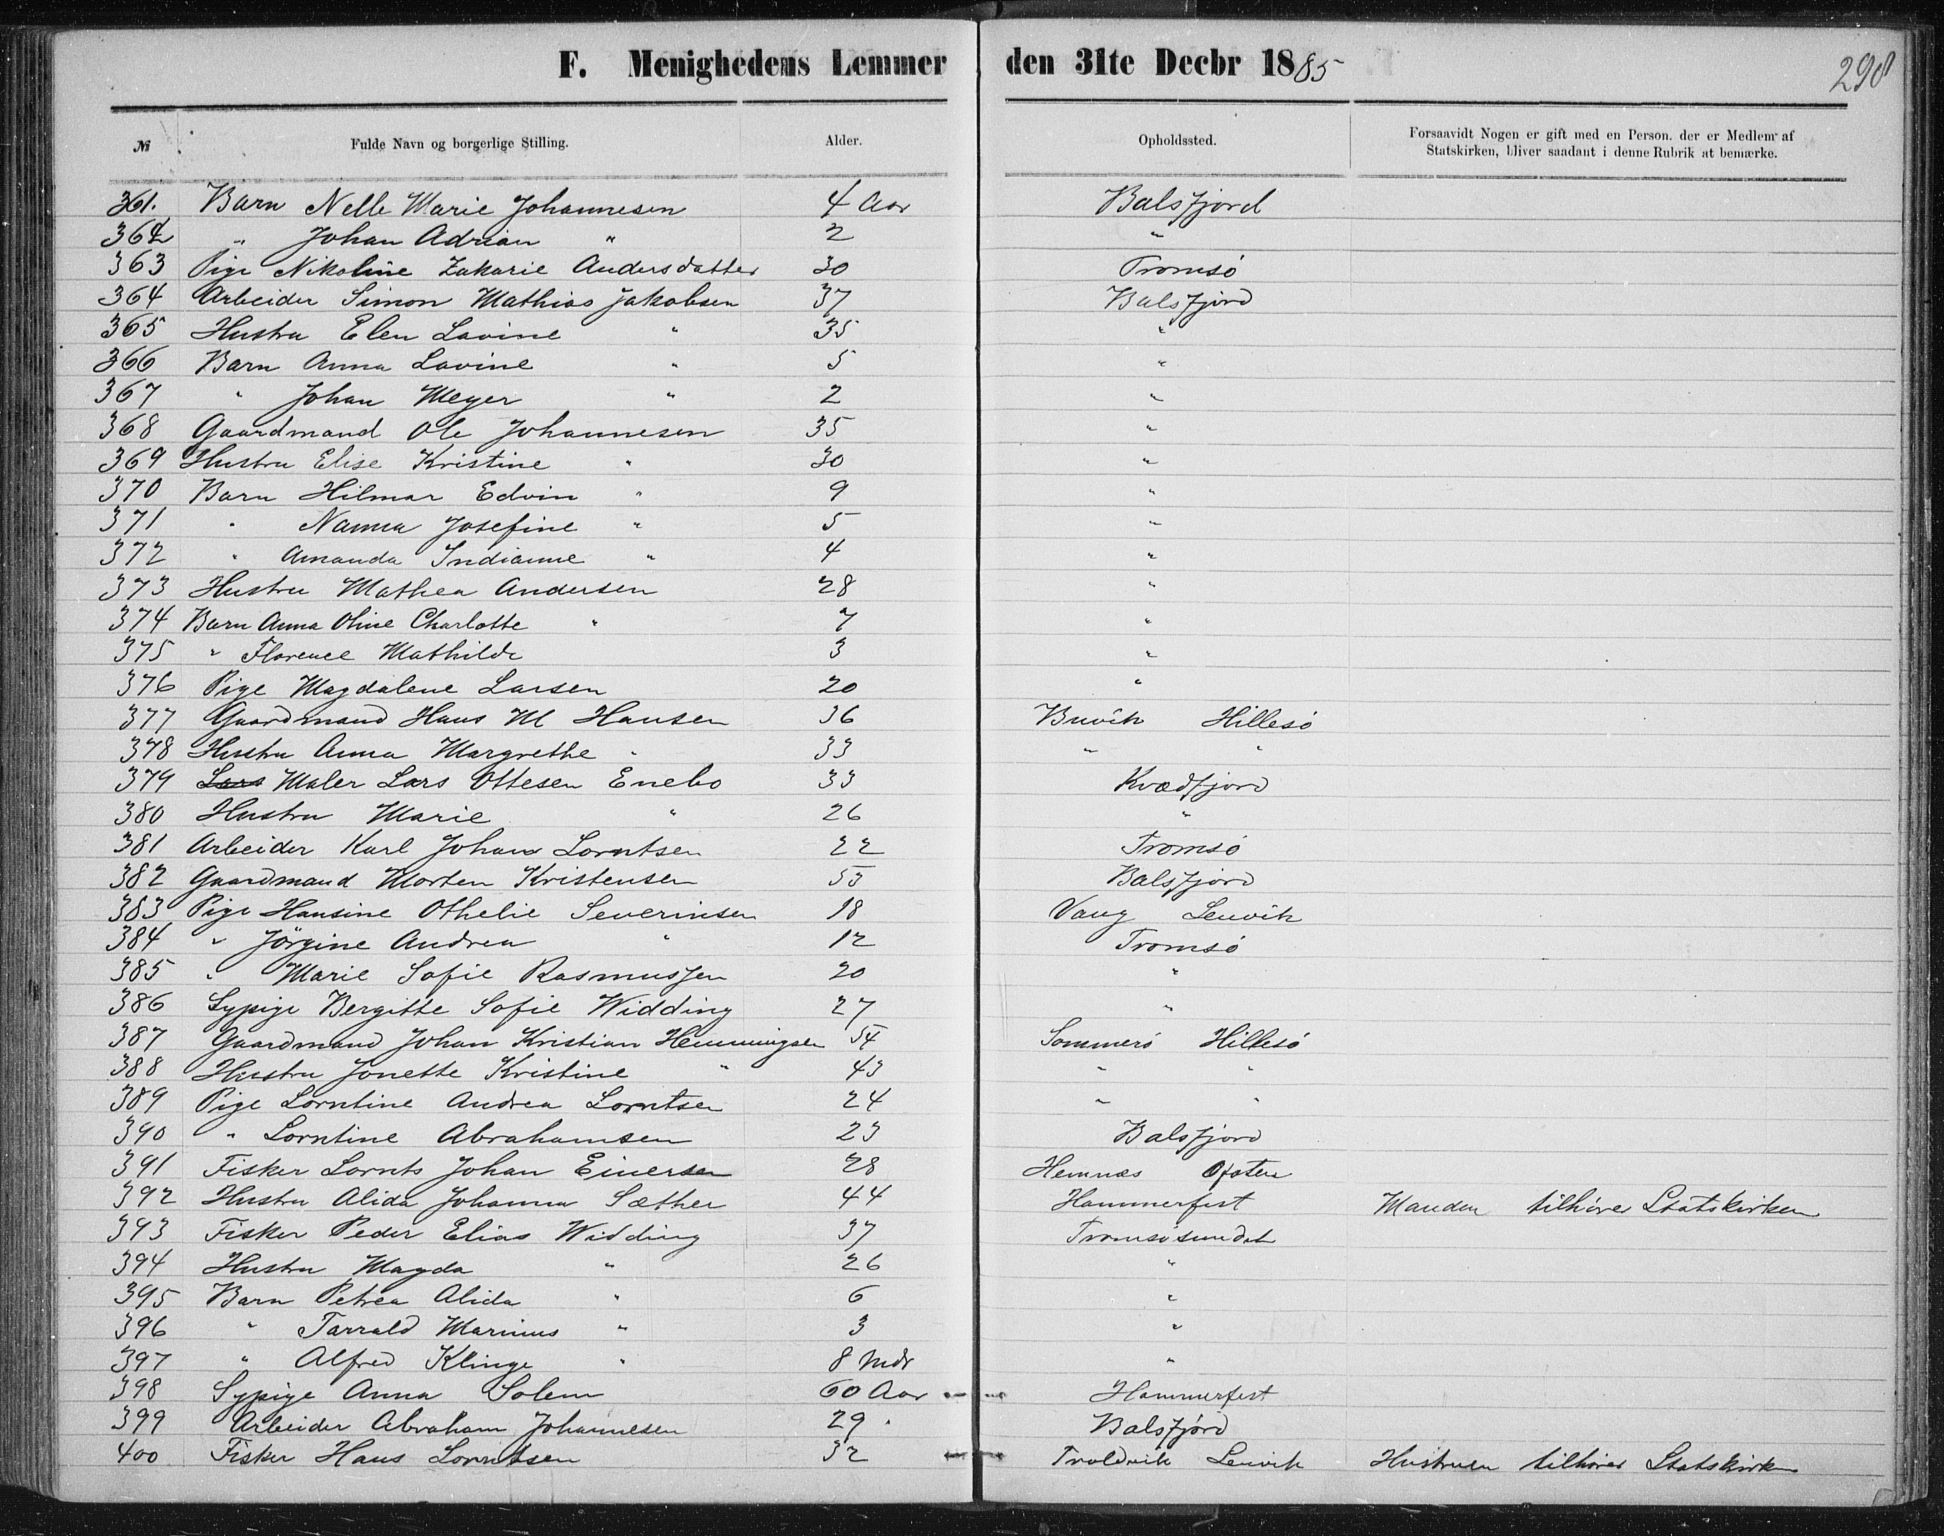 F. Menighedens Lemmer den 31te Decbr 1885
298
№ Fulde Navn og borgerlige Stilling. Alder. Opholdssted. Forsaavidt Nogen er gift med en Person, der er Medlem af
Statskirken, bliver saadant i denne Rubrik at bemærke.
361. Barn Nelle Marie Johannesen 4 Aar Balsfjord
362 " Johan Adrian " 2 "
363 Pige Nikoline Zakarie Andersdatter 30 Tromsö
364 Arbeider Simon Mathias Jakobsen 37 Balsfjord
365 Hustru Elen Lavine " 35 "
366 Barn Anna Lavine " 5 "
367 " Johan Meyer " 2 "
368 Gaardmand Ole Johannesen 35 "
369 Hustru Elise Kristine " 30 "
370 Barn Hilmar Edvin " 9 "
371 " Nanna Josefine " 5 "
372 " Amanda Indianne " 4 "
373 Hustru Mathea Andersen 28 "
374 Barn Anna Oline Charlotte " 7 "
375 " Florence Mathilde 3 "
376 Pige Magdalene Larsen 20 "
377 Gaardmand Hans M Hansen 36 Buvik Hillesö
378 Hustru Anna Margrethe " 33 " "
379 Lars Maler Lars Ottesen Enebo 33 Kvædfjord
380 Hustru Marie " 26 "
381 Arbeider Karl Johan Lorntsen 22 Tromsö
382 Gaardmand Morten Kristensen 53 Balsfjord
383 Pige Hansine Othelie Severinsen 18 Vang Lenvik
384 " Jörgine Andrea " 12 Tromsö
385 " Marie Sofie Rasmussen 20 "
386 Sypige Bergitte Sofie Widding 27 "
387 Gaardmand Johan Kristian Hemmingsen 54 Sommerö Hillesö
388 Hustru Jonette Kristine " 43 " "
389 Pige Lorntine Andrea Lorntsen 24 " "
390 " Lorntine Abrahamsen 23 Balsfjord
391 Fisker Lornts Johan Einersen 28 Hemnæs Ofoten
392 Hustru Alida Johanna Sæther 44 Hammerfest Manden tilhører Statskirken
393 Fisker Peder Elias Widding 37 Tromsösundet
394 Hustru Magda " 26 "
395 Barn Petrea Alida " 6 "
396 " Tarrald Marinus " 3 "
397 " Alfred Klinge " 8 Mdr "
398 Sypige Anna Solem 60 Aar Hammerfest
399 Arbeider Abraham Johannesen 29 " Balsfjord
400 Fisker Hans Lorntsen 32 Troldvik Lenvik Hustruen tilhører Statskirken